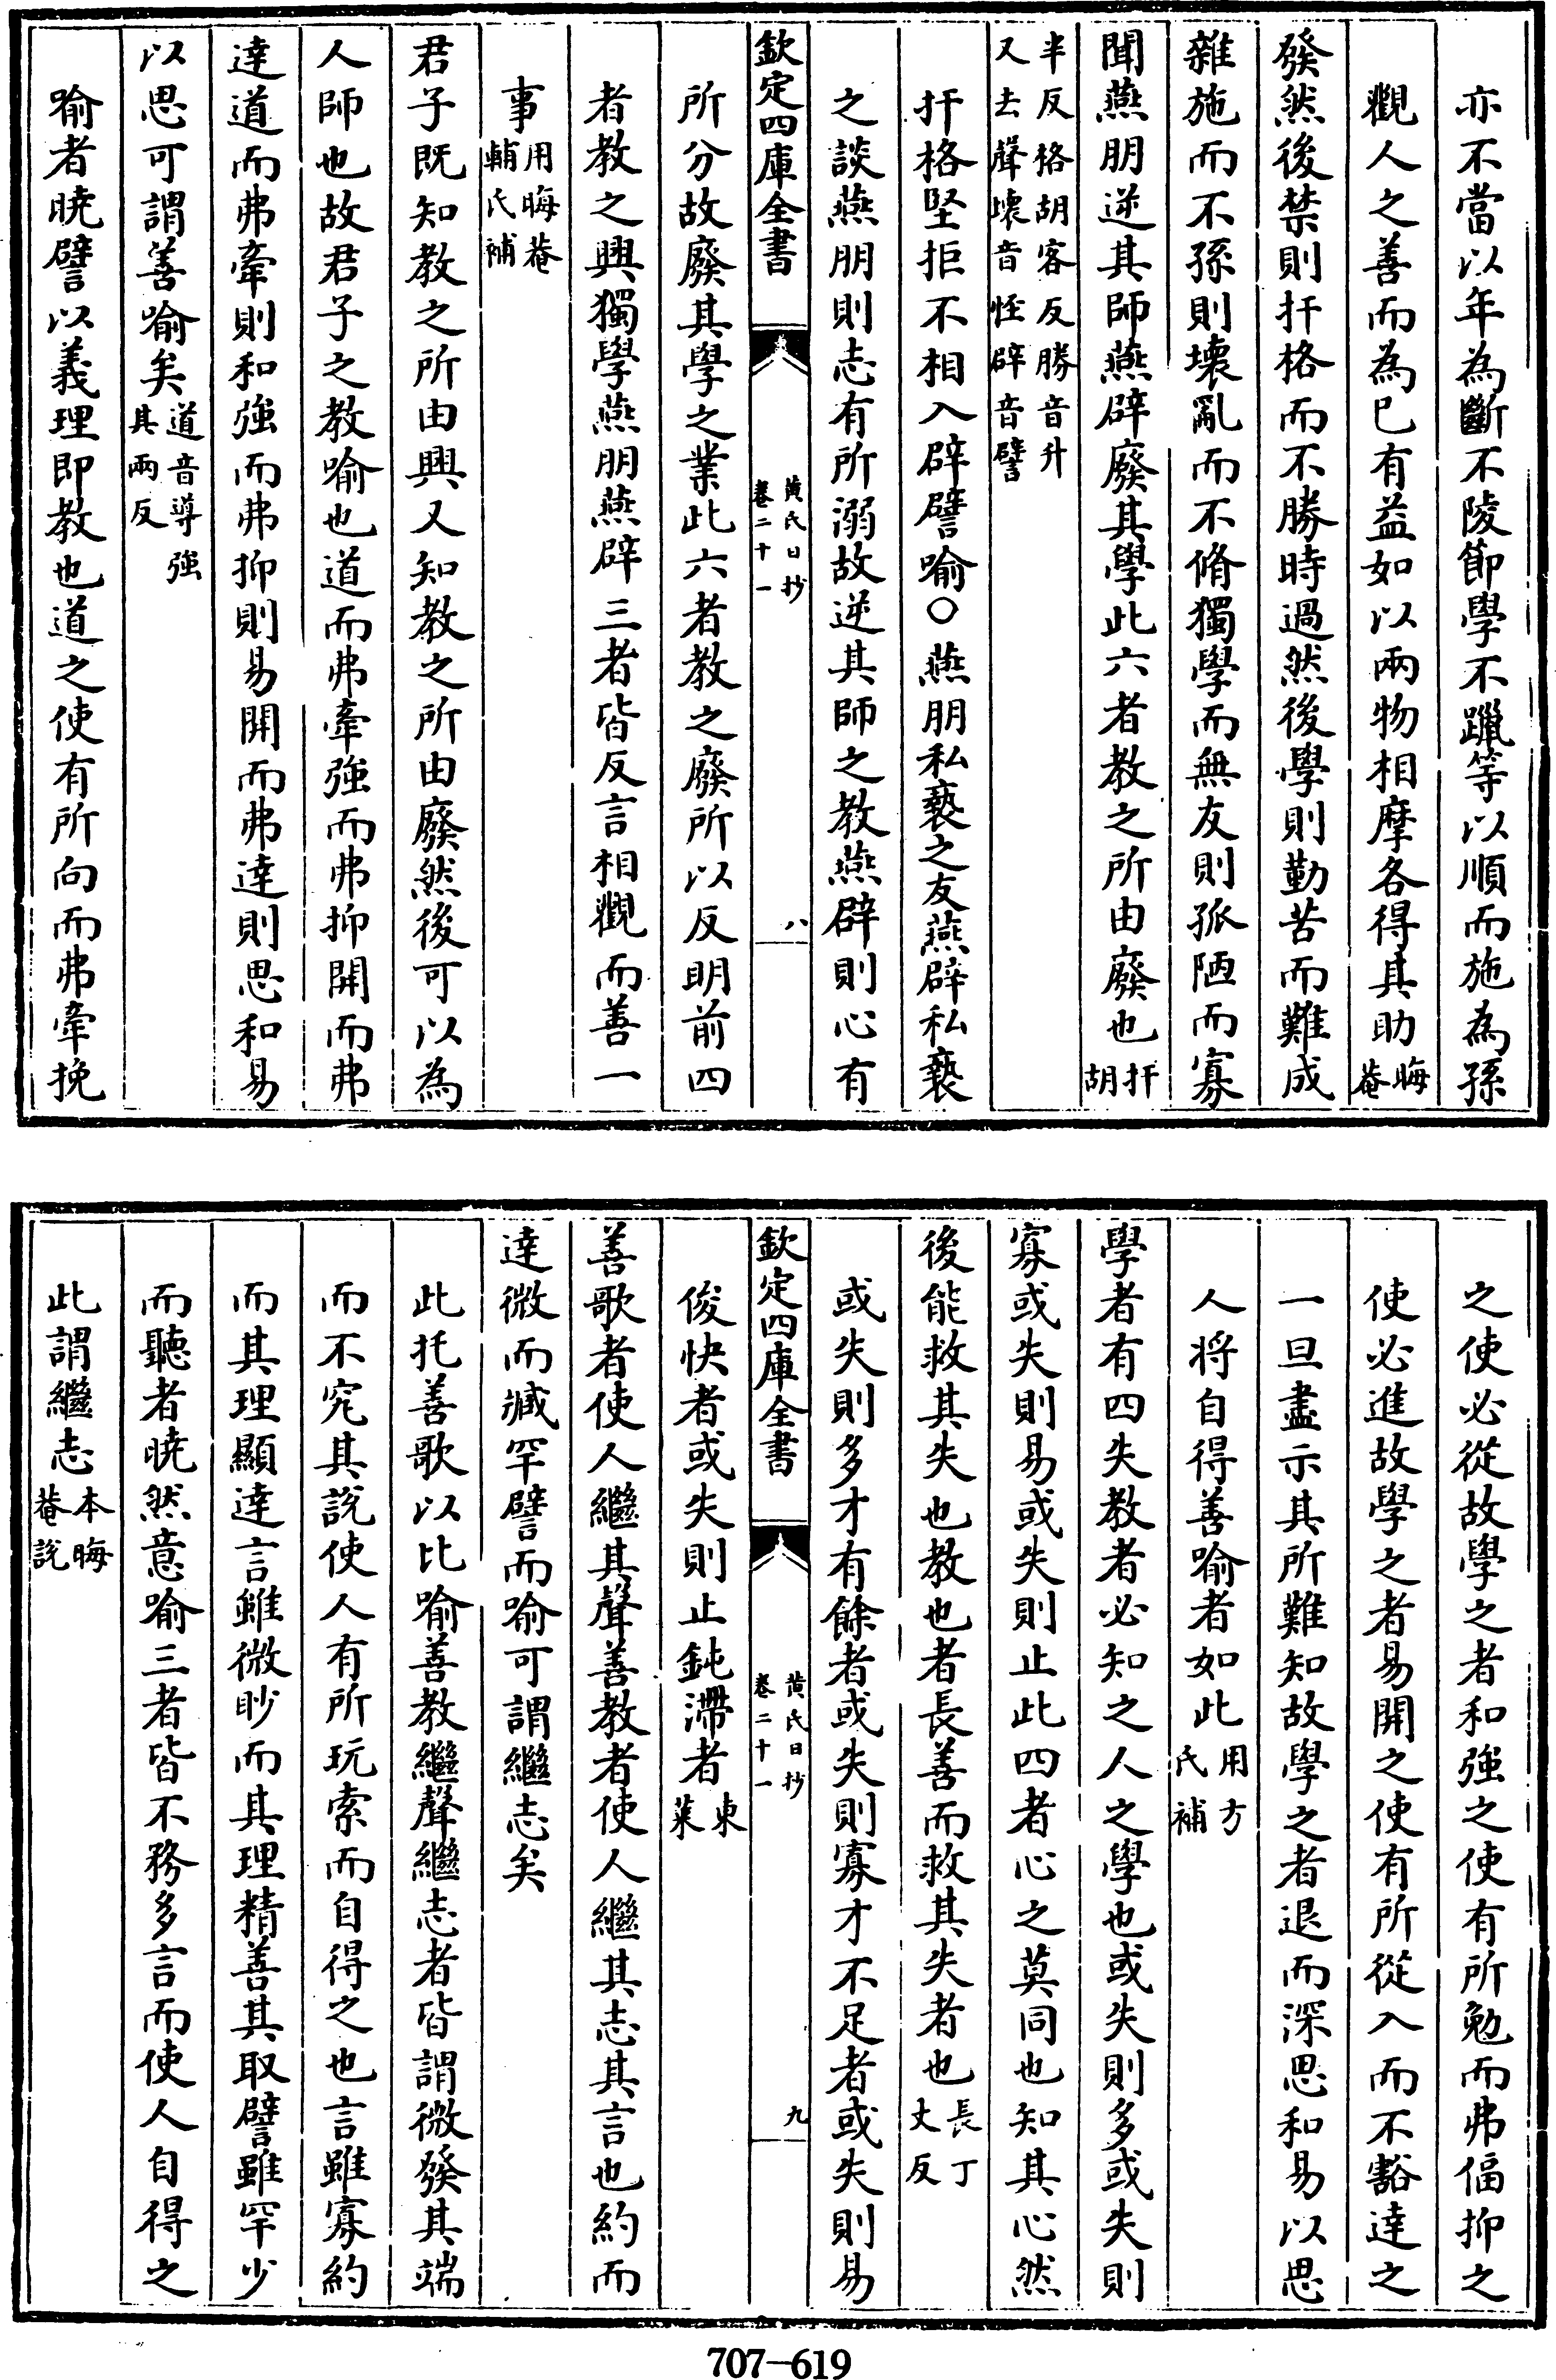 亦不當以年為斷不陵節學不躐等以順而施為孫
觀人之善而為已有益如以兩物相摩各得其助晦菴
發然後禁則扞格而不勝時過然後學則勤苦而難成
雜施而不孫則壞亂而不脩獨學而無友則孤陋而寡
聞燕朋逆其師燕辟廢其學此六者教之所由廢也扞胡
半反格胡客反勝音升又去聲壞音怪辟音譬
扞格堅拒不相入辟譬喻○燕朋私䙝之友燕辟私䙝
之談燕朋則志有所溺故逆其師之教燕辟則心有
欽定四庫全書 黃氏日抄卷二十一 八
所分故廢其學之業此六者教之廢所以反明前四
者教之興獨學燕朋燕辟三者皆反言相觀而善一
事用晦菴輔氏補
君子既知教之所由興又知教之所由廢然後可以為
人師也故君子之教喻也道而弗牽強而弗抑開而弗
達道而弗牽則和強而弗抑則易開而弗達則思和易
以思可謂善喻矣道音導強其兩反
喻者曉譬以義理即教也道之使有所向而弗牽挽
之使必從故學之者和強之使有所勉而弗偪抑之
使必進故學之者易開之使有所從入而不豁達之
一旦盡示其所難知故學之者退而深思和易以思
人將自得善喻者如此用方氏補
學者有四失教者必知之人之學也或失則多或失則
寡或失則易或失則止此四者心之莫同也知其心然
後能救其失也教也者長善而救其失者也長丁丈反
或失則多才有餘者或失則寡才不足者或失則易
欽定四庫全書 黃氏日抄卷二十一 九
俊快者或失則止鈍滯者東萊
善歌者使人繼其聲善教者使人繼其志其言也約而
達微而臧罕譬而喻可謂繼志矣
此托善歌以比喻善教繼聲繼志者皆謂微發其端
而不究其說使人有所玩索而自得之也言雖寡約
而其理顯達言雖微眇而其理精善其取譬雖罕少
而聽者曉然意喻三者皆不務多言而使人自得之
此謂繼志本晦菴說
707-619